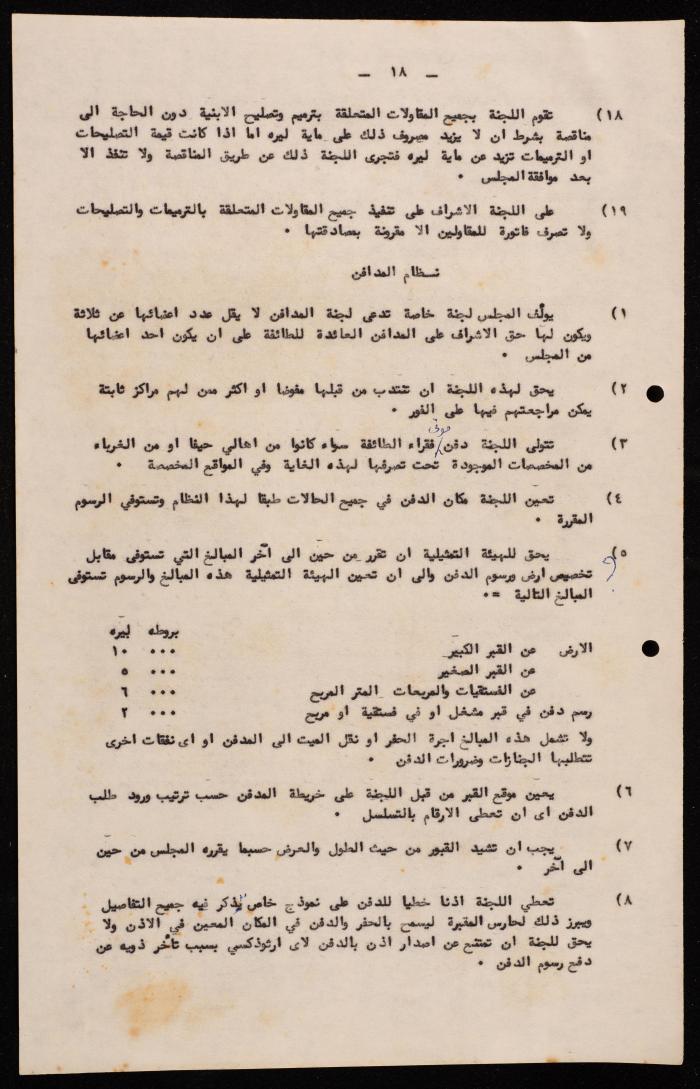 – ١٨ –
١٨) تقوم اللجنة بجميع المقاولات المتعلقة بترميم وتصليح الابنية دون الحاجة الى
مناقصة بشرط ان لا يزيد مصروف ذلك على ماية ليره اما اذا كانت قيمة التصليحات
او الترميمات تزيد عن ماية ليره فتجرى اللجنة ذلك عن طريق المناقصة ولا تنفذ الا
بعد موافقة المجلس .
١٩) على اللجنة الاشراف على تنفيذ جميع المقاولات المتعلقة بالترميمات والتصليحات
ولا تصرف فاتورة للمقاولين الا مقرونة بمصادقتها .
نظام المدافن
١) يولّف المجلس لجنة خاصة تدعى لجنة المدافن لا يقل عدد اعضائها عن ثلاثة
ويكون لها حق الاشراف على المدافن العائدة للطائفة على ان يكون احد اعضائها
من المجلس .
٢) يحق لهذه اللجنة ان تنتدب من قبلها مفوضا او اكثر ممن لهم مراكز ثابتة
يمكن مراجعتهم فيها على الفور .
٣) تتولى اللجنة دفن موتى فقراء الطائفة سواء كانوا من اهالي حيفا او من الغرباء
من المخصصات الموجودة تحت تصرفها لهذه الغاية وفي المواقع المخصصة .
٤) تعين اللجنة مكان الدفن في جميع الحالات طبقا لهذا النظام وتستوفي الرسوم
المقررة .
٥) يحق للهيئة التمثيلية ان تقرر من حين الى آخر المبالغ التي تستوفى مقابل
تخصيص ارض ورسوم الدفن والى ان تعين الهيئة التمثيلية هذه المبالغ والرسوم تستوفى
المبالغ التالية =.
بروطه ليره
الارض عن القبر الكبير ٠٠٠ ١٠
عن القبر الصغير ٠٠٠ ٥
عن الفستقيات والمربعات المتر المربع ٠٠٠ ٦
رسم دفن في قبر مشغل او في فستقية او مربع ٠٠٠ ٢
ولا تشمل هذه المبالغ اجرة الحفر او نقل الميت الى المدفن او اى نفقات اخرى
تتطلبها الجنازات وضرورات الدفن .
٦) يعين موقع القبر من قبل اللجنة على خريطة المدفن حسب ترتيب ورود طلب
الدفن اى ان تعطى الارقام بالتسلسل .
٧) يجب ان تشيد القبور من حيث الطول والعرض حسبما يقرره المجلس من حين
الى آخر .
٨) تعطي اللجنة اذنا خطيا للدفن على نموذج خاص يُذكر فيه جميع التفاصيل
ويبرز ذلك لحارس المقبرة ليسمح بالحفر والدفن في المكان المعين في الاذن ولا
يحق للجنة ان تمتنع عن اصدار اذن بالدفن لاى ارثوذكسي بسبب تأخر ذويه عن
دفع رسوم الدفن .